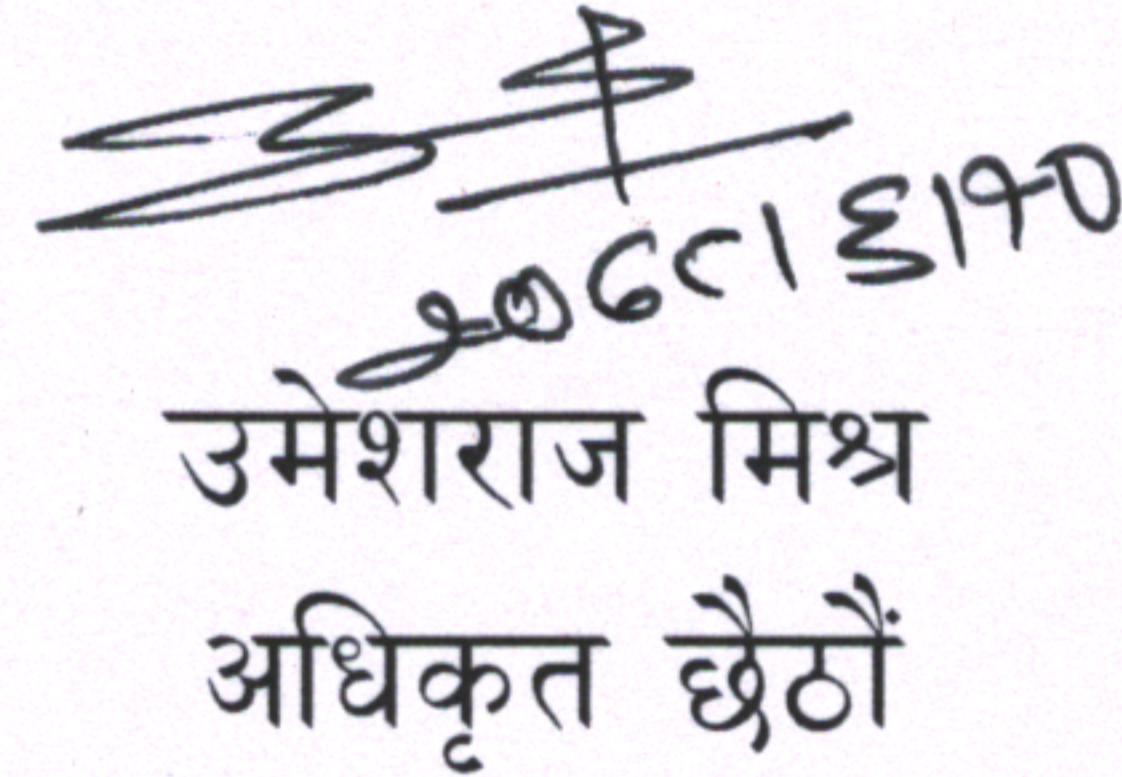 २०७८।६।१०
उमेशराज मिश्र
अधिकृत छैठौं